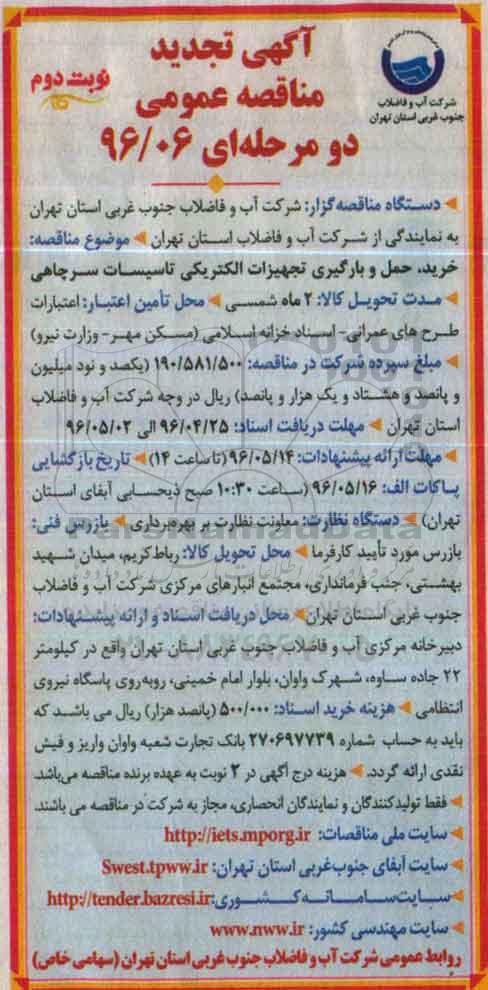 آگهی تجدید
مناقصه عمومی
دو مرحله‌ای ۹۶/۰۶
نوبت دوم
شرکت آب و فاضلاب
جنوب غربی استان تهران
دستگاه مناقصه‌گزار: شرکت آب و فاضلاب جنوب غربی استان تهران
به نمایندگی از شرکت آب و فاضلاب استان تهران موضوع مناقصه:
خرید، حمل و بارگیری تجهیزات الکتریکی تاسیسات سرچاهی
مدت تحویل کالا: ۲ ماه شمسی محل تأمین اعتبار: اعتبارات
طرح های عمرانی- اسناد خزانه اسلامی (مسکن مهر- وزارت نیرو)
مبلغ سپرده شرکت در مناقصه: ۱۹۰/۵۸۱/۵۰۰ (یکصد و نود میلیون
و پانصد و هشتاد و یک هزار و پانصد) ریال در وجه شرکت آب و فاضلاب
استان تهران مهلت دریافت اسناد: ۹۶/۰۴/۲۵ الی ۹۶/۰۵/۰۲
مهلت ارائه پیشنهادات: ۹۶/۰۵/۱۴ (تا ساعت ۱۴) تاریخ بازگشایی
پاکات الف: ۹۶/۰۵/۱۶ (ساعت ۱۰:۳۰ صبح ذیحسابی آبفای استان
تهران) دستگاه نظارت: معاونت نظارت بر بهره‌برداری بازرس فنی:
بازرس مورد تأیید کارفرما محل تحویل کالا: رباط‌کریم، میدان شهید
بهشتی، جنب فرمانداری، مجتمع انبارهای مرکزی شرکت آب و فاضلاب
جنوب غربی استان تهران محل دریافت اسناد و ارائه پیشنهادات:
دبیرخانه مرکزی آب و فاضلاب جنوب غربی استان تهران واقع در کیلومتر
۲۲ جاده ساوه، شهرک واوان، بلوار امام خمینی، روبه‌روی پاسگاه نیروی
انتظامی هزینه خرید اسناد: ۵۰۰/۰۰۰ (پانصد هزار) ریال می باشد که
باید به حساب شماره ۲۷۰۶۹۷۷۳۹ بانک تجارت شعبه واوان واریز و فیش
نقدی ارائه گردد. هزینه درج آگهی در ۲ نوبت به عهده برنده مناقصه می‌باشد.
فقط تولیدکنندگان و نمایندگان انحصاری، مجاز به شرکت در مناقصه می باشند.
سایت ملی مناقصات: http://iets.mporg.ir
سایت آبفای جنوب‌غربی استان تهران: Swest.tpww.ir
سایت سامانه کشوری: http://tender.bazresi.ir
سایت مهندسی کشور: www.nww.ir
روابط عمومی شرکت آب و فاضلاب جنوب غربی استان تهران (سهامی خاص)
ParsNamadData